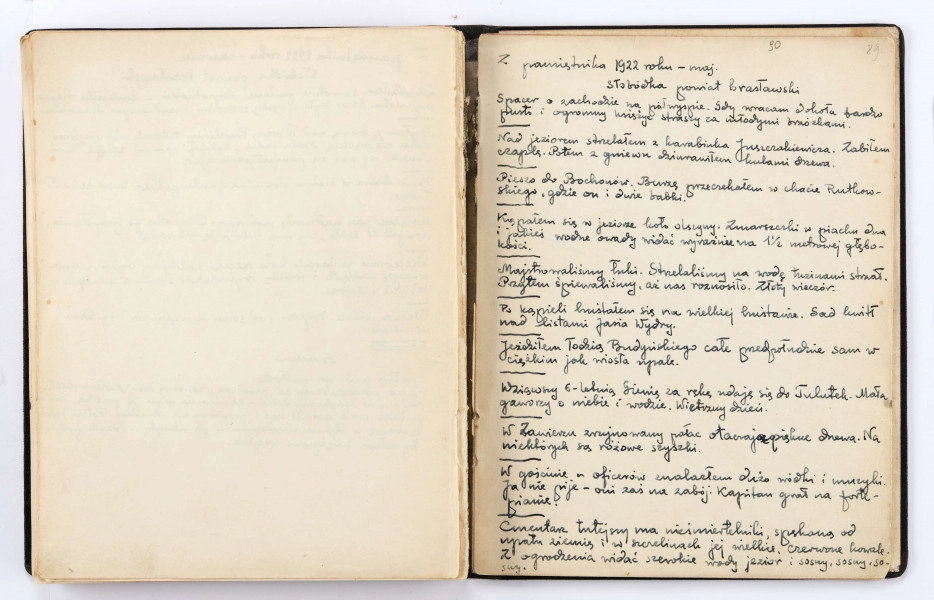 90
89.
Z pamiętnika 1922 roku – maj.
Słobódka powiat Brasławski
Spacer o zachodzie na półwyspie. Gdy wracam dokoła bardzo
pusto i ogromny księżyc straszy za młodymi brzózkami.
Nad jeziorem strzelałem z karabinka Juszczakiewicza. Zabiłem
czaplę. Potem z gniewu dziurawiłem kulami drzewa.
Pieszo do Bochonów. Burzę przeczekałem w chacie Rutkow-
skiego, gdzie on i dwie babki.
Kąpałem się w jeziorze koło olszyny. Zmarszczki w piachu dna
i jakieś wodne owady widać wyraźnie na 1½ metrowej głębo-
kości.
Majstrowaliśmy łuki. Strzelaliśmy na wodę tuzinami strzał.
Przytem śpiewaliśmy, aż nas roznosiło. Złoty wieczór.
Po kąpieli huśtałem się na wielkiej huśtawie. Sad kwitł
nad listami Jasia Wydry.
Jeździłem łodzią Budyńskiego całe przedpołudnie sam w
ciężkim jak wiosła upale.
Wziąwszy 6-letnią Gienię za rękę udaję się do Tulułek. Mała
gaworzy o niebie i wodzie. Wietrzny dzień.
W Zawierzu zrujnowany pałac otaczają piękne drzewa. Na
niektórych są różowe szyszki.
W gościnie u oficerów znalazłem dużo wódki i muzyki.
Ja nie piję – oni zaś na zabój. Kapitan grał na forte-
pianie.
Cmentarz tutejszy ma nieśmiertelniki, spękaną od
upału ziemię i w szczelinach jej wielkie, czerwone kowale.
Z ogrodzenia widać szerokie wody jezior i sosny, sosny, so-
sny.